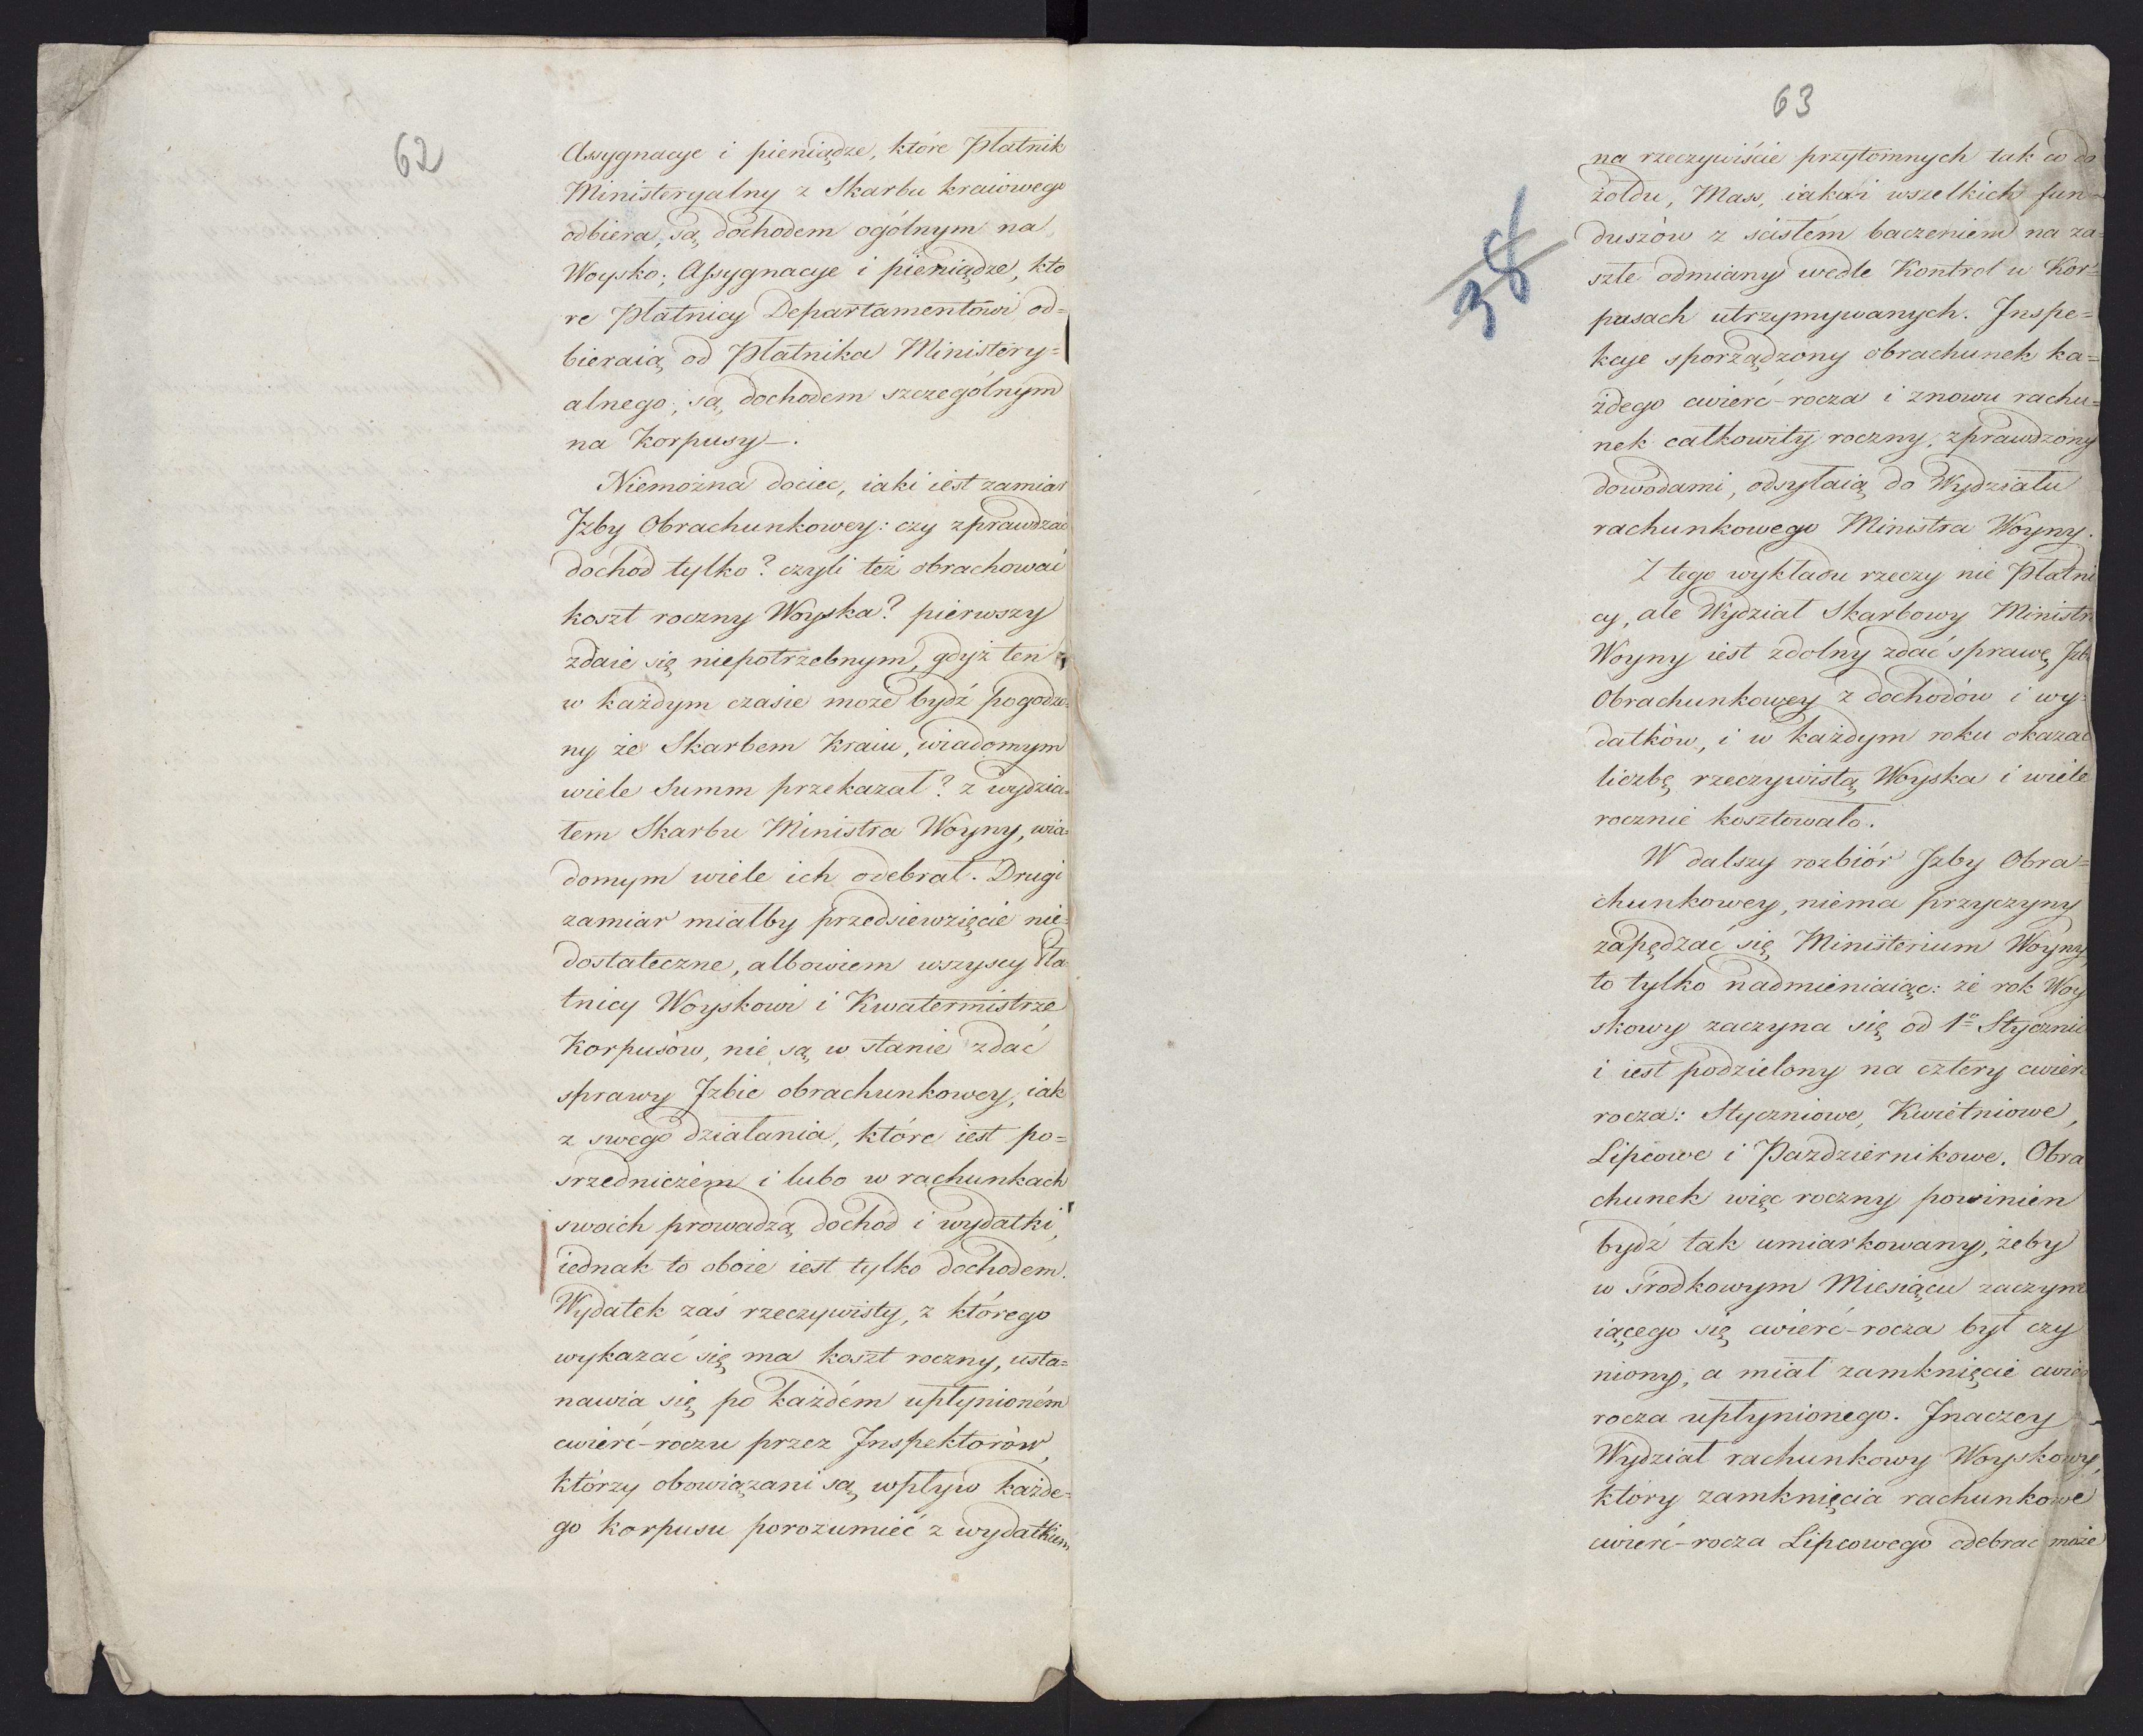 62
Assygnacye i pieniądze, które Płatnik
Ministeryalny z Skarbu kraiowego
odbiera, są dochodem ogólnym na
Woysko; Assygnacye i pieniądze, kto
re Płatnicy Departamentowi od=
bieraią od Płatnika Ministery=
alnego, są dochodem szczególnym
na Korpusy —.
Niemożna dociec, iaki iest zamiar
Izby Obrachunkowey: czy zprawdzać
dochód tylko? czyli też obrachować
koszt roczny Woyska? pierwszy
zdaie się niepotrzebnym, gdyż ten
w każdym czasie może bydź pogodzo=
ny ze Skarbem Kraiu, wiadomym
wiele Summ przekazał? z wydzia=
łem Skarbu Ministra Woyny, wia=
domym wiele ich odebrał. Drugi
zamiar miałby przedsiewzięcie nie=
dostateczne, albowiem wszyscy Pła=
tnicy Woyskowi i Kwatermistrze
Korpusów, nie są w stanie zdać
sprawy Izbie obrachunkowey, iak
z swego działania, które iest po=
srzedniczém i lubo w rachunkach
swoich prowadzą dochód i wydatki,
iednak to oboie iest tylko dochodem.
Wydatek zaś rzeczywisty, z którego
wykazać się ma koszt roczny, usta=
nawia się po każdém upłynioném
cwierć-roczu przez Inspektorów,
którzy obowiązani są, wpływ każde=
go korpusu porozumieć z wydatkiem
63
38
na rzeczywiście przytomnych tak co do
żołdu, Mass, iako i wszelkich fun=
duszów z scisłém baczeniem na za=
szłe odmiany wedle Kontrol w Kor=
pusach utrzymywanych. Inspe=
kcye sporządzony obrachunek ka=
żdego cwierć-rocza i znowu rachu=
nek całkowity roczny, zprawdzony
dowodami, odsyłaią do Wydziału
rachunkowego Ministra Woyny.
Z tego wykładu rzeczy nie Płatni
cy, ale Wydział Skarbowy Ministra
Woyny iest zdolny zdać sprawę Izbie
Obrachunkowey z dochodów i wy=
datków, i w każdym roku okazać
liczbę rzeczywistą Woyska i wiele
rocznie kosztowało.
W dalszy rozbiór Izby Obra=
chunkowey, niema przyczyny
zapędzać się Ministerium Woyny,
to tylko nadmieniaiąc: że rok Woy
skowy zaczyna się od 1º Stycznia
i iest podzielony na cztery cwierć
rocza: Styczniowe, Kwietniowe,
Lipcowe i Pazdziernikowe. Obra
chunek więc roczny powinien
bydź tak umiarkowany, żeby
w środkowym Miesiącu zaczyna
iącego się cwierć-rocza był czy
niony, a miał zamknięcie cwierć
rocza upłynionego. Inaczey
Wydział rachunkowy Woyskowy,
który zamknięcia rachunkowe
cwierć-rocza Lipcowego odebrać może